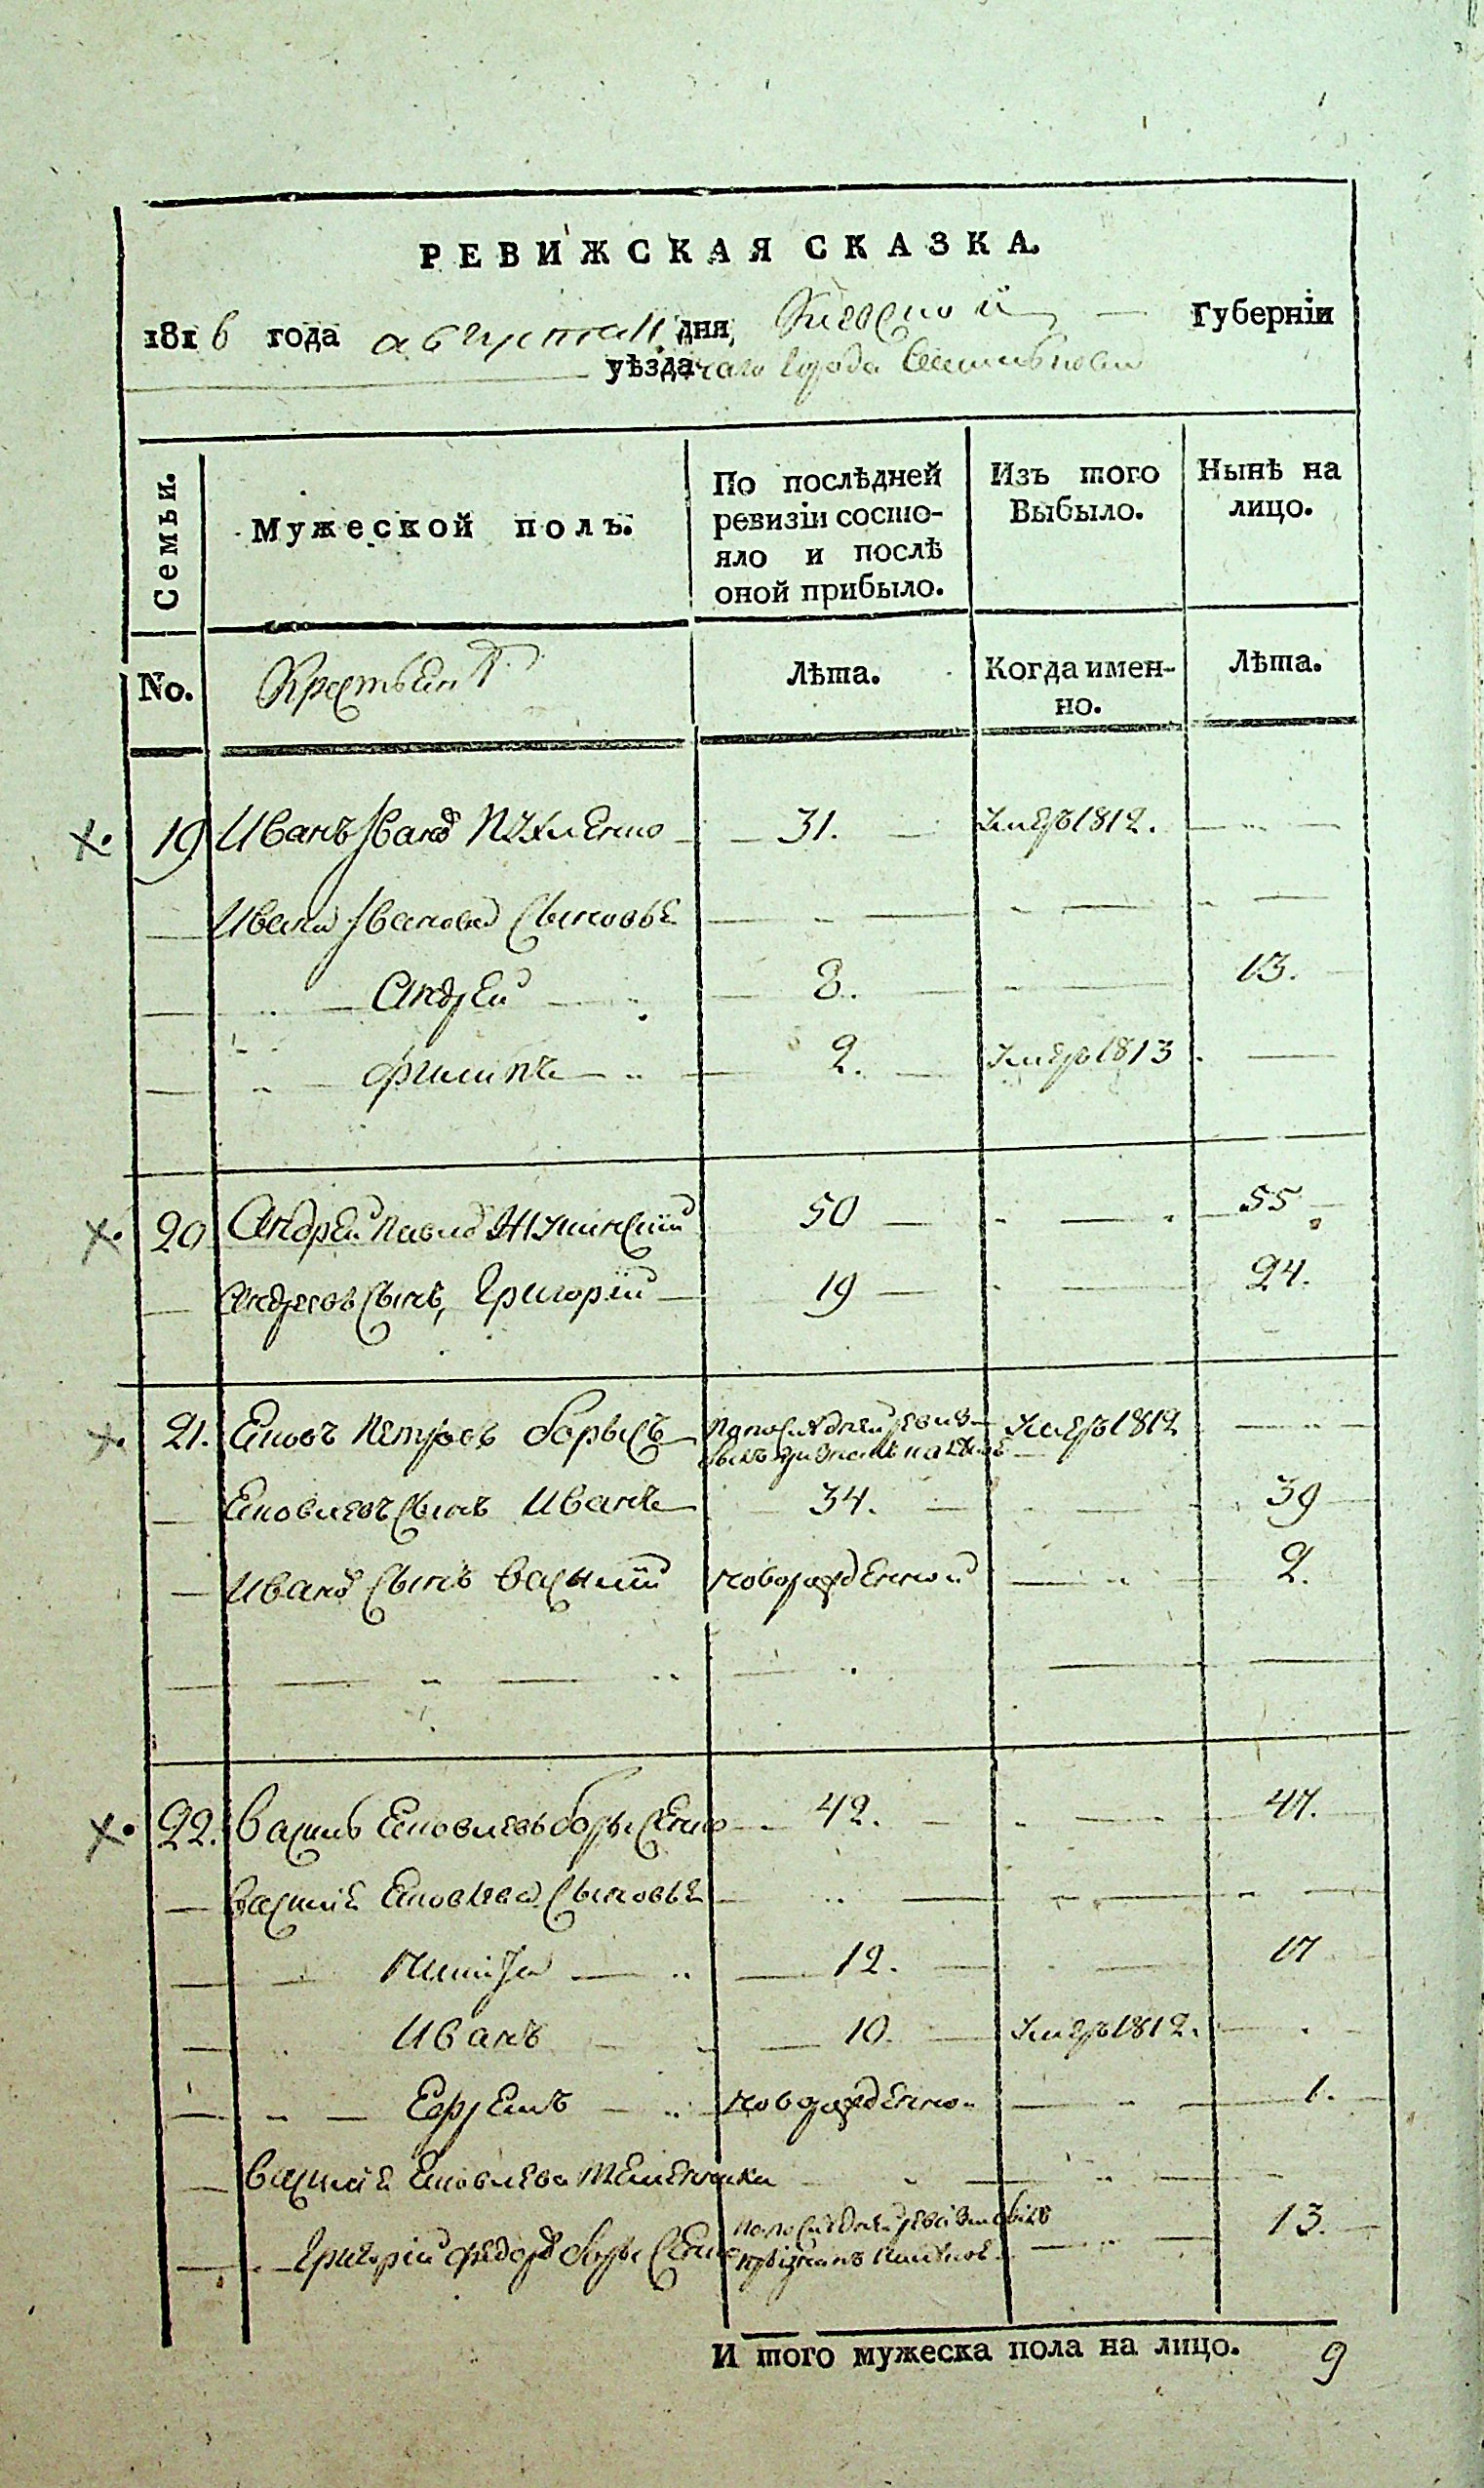 РЕВИЖСКАЯ СКАЗКА.
1816 года августа 11 дня, Киевской Губерніи
уѣзда города
Семьи.
Мужеской полъ.
По послѣдней ревизіи состо-
яло и послѣ
оной прибыло.
Изъ того
Выбыло.
Нынѣ на
лицо.
No.
Лѣта.
Когда имен-
но.
Лѣта.
х. 19 Иванъ Иванов 31. Умеръ 1812.
Ивана Иванова Сыновья
Андрей 8. 13.
Филипъ 2. Умеръ 1813
х. 20 Андрей Павлов 50 55
Андреевъ Сынъ, Григорій 19 24.
х. 21. Ековъ Петровъ борысъ По последней ревиз Умеръ 1812
Ековлевъ Сынъ Иванъ 34. 39
Иванов Сынъ Василій новорожденной 2.
х. 22. Василь Ековлевъ борысенко 42. 47.
Василіе Ековлева Сыновья
Никита 12. 17
Иванъ 10. Умеръ 1812.
Ефремъ новорожденно 1.
Василіе Ековлева племенники
Григорій Федоров борысенко По последней ревизіи 13.
И того мужеска пола на лицо. 9